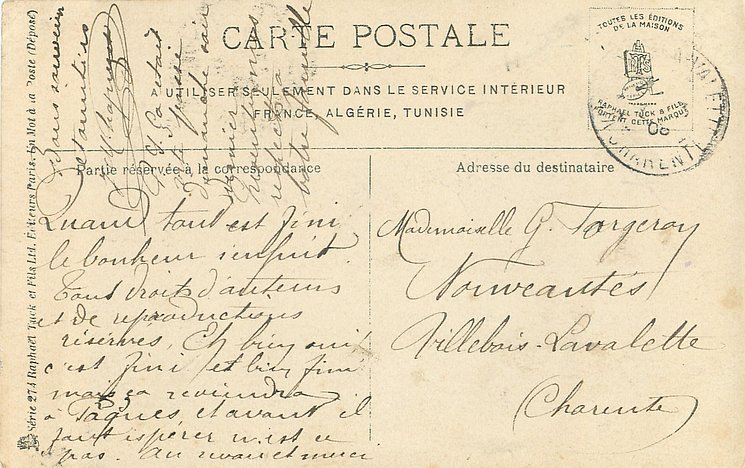 CARTE POSTALE
A UTILISER SEULEMENT DANS LE SERVICE INTÉRIEUR
FRANCE, ALGÉRIE, TUNISIE
TOUTES LES ÉDITIONS
DE LA MAISON
RAPHAEL TUCK & FILS
PORTENT CETTE MARQUE
08
CHARENTE
Partie réservée à la correspondance
Adresse du destinataire
Quand tout est fini
le bonheur s'enfuit.
Tous droits d'auteurs
et de reproductions
réservés. Eh bien oui
c'est fini et bien fini
mais ça reviendra
à Pâques et avant il
faut espérer n'est ce
pas. Au revoir et merci
Bons souvenirs
et amitiés
P.S.
dimanche soir
dernier
respects à
votre famille
Mademoiselle G. Forgeron
Nouveautés
Villebois-Lavalette
(Charente)
Série 274 Raphaël Tuck et Fils Ltd, Éditeurs Paris. Un Mot à la Poste (Déposé)